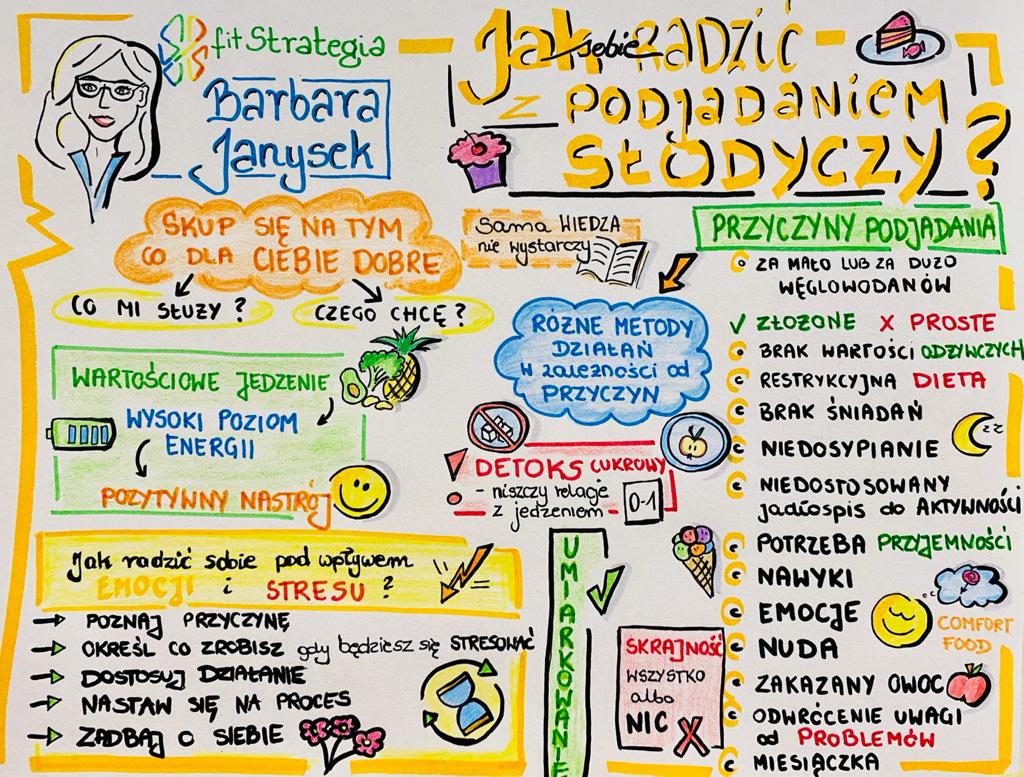 fitStrategia
Barbara
Janysek
Jak sobie RADZIĆ
z PODJADANIEM
SŁODYCZY?
SKUP SIĘ NA TYM
CO DLA CIEBIE DOBRE
CO MI SŁUŻY?
CZEGO CHCĘ?
WARTOŚCIOWE JEDZENIE
WYSOKI POZIOM
ENERGII
POZYTYWNY NASTRÓJ
Jak radzić sobie pod wpływem
EMOCJI i STRESU?
POZNAJ PRZYCZYNĘ
OKREŚL CO ZROBISZ gdy będziesz się STRESOWAĆ
DOSTOSUJ DZIAŁANIE
NASTAW SIĘ NA PROCES
ZADBAJ O SIEBIE
Sama WIEDZA
nie wystarczy
RÓŻNE METODY
DZIAŁAŃ
W zależności od
PRZYCZYN
DETOKS CUKROWY
- niszczy relację
z jedzeniem
0-1
UMIARKOWANIE
SKRAJNOŚĆ
WSZYSTKO
albo
NIC X
PRZYCZYNY PODJADANIA
ZA MAŁO LUB ZA DUŻO
WĘGLOWODANÓW
✓ ZŁOŻONE X PROSTE
BRAK WARTOŚCI ODŻYWCZYCH
RESTRYKCYJNA DIETA
BRAK ŚNIADAŃ
NIEDOSYPIANIE
zz
NIEDOSTOSOWANY
jadłospis do AKTYWNOŚCI
POTRZEBA PRZYJEMNOŚCI
NAWYKI
EMOCJE
COMFORT
FOOD
NUDA
ZAKAZANY OWOC
ODWRÓCENIE UWAGI
od PROBLEMÓW
MIESIĄCZKA